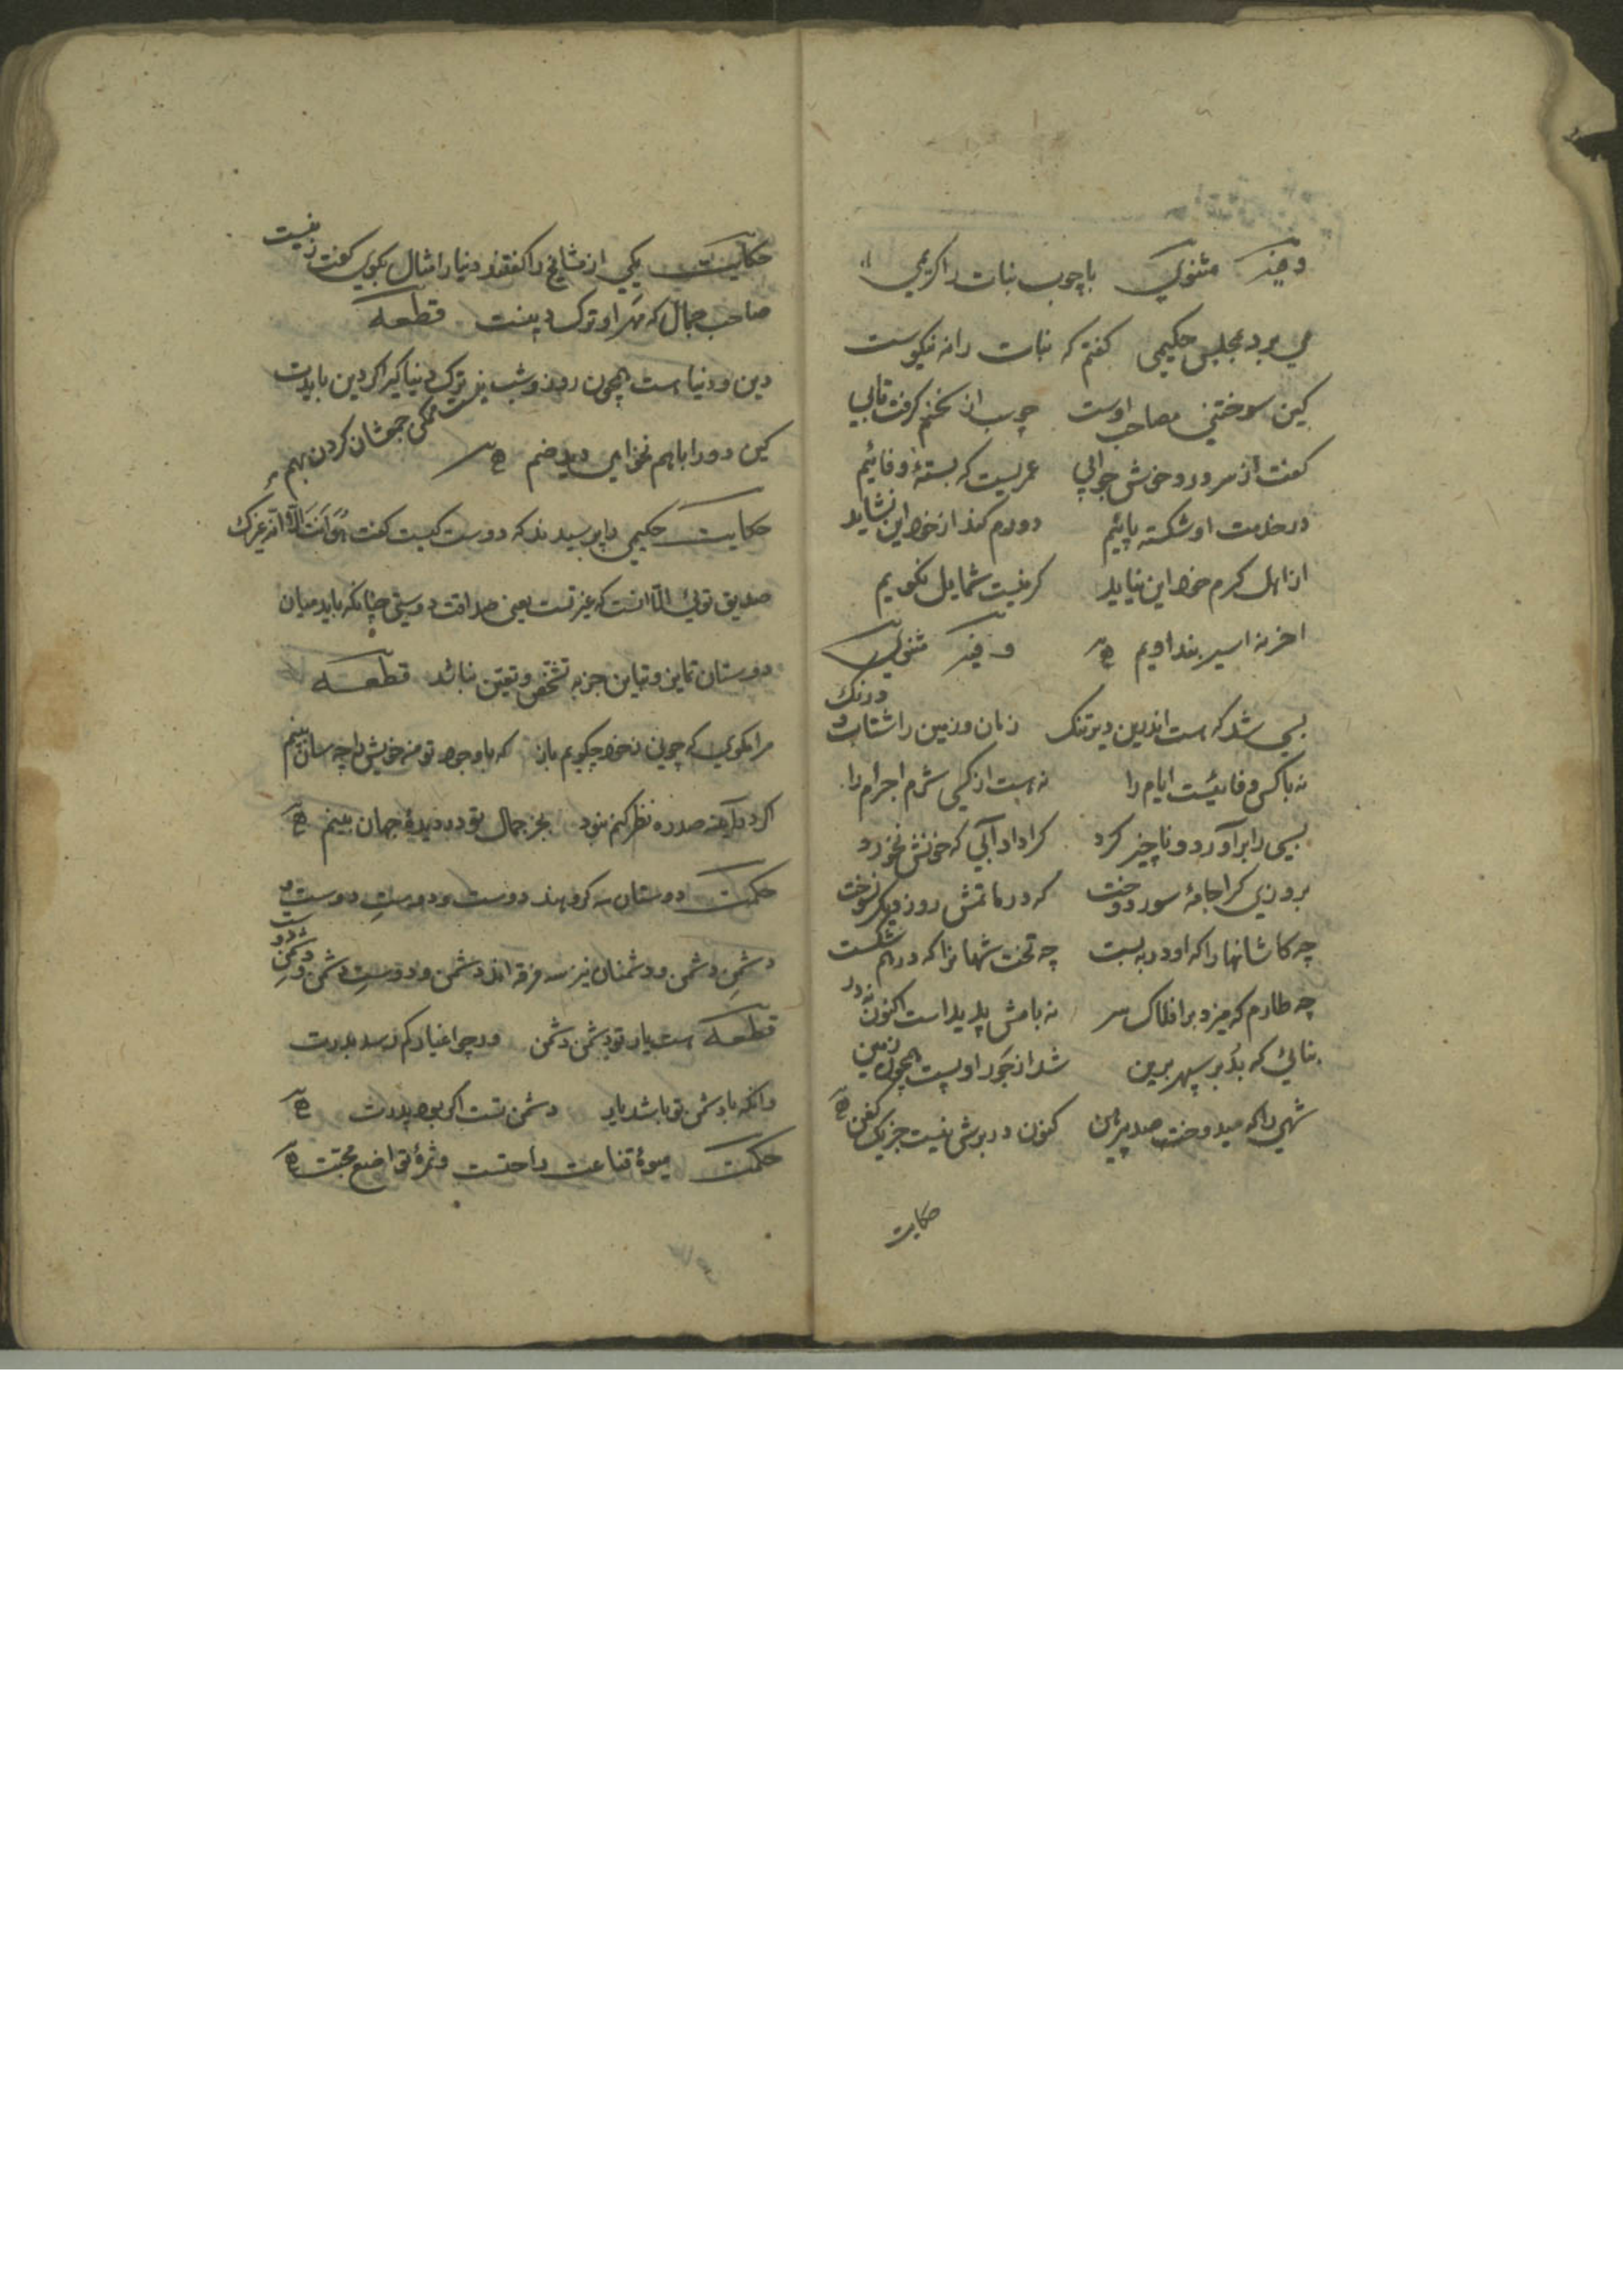 وفیه مثنوی باچوب نبات را کریمی
می برد بمجلس حکیمی کفتم که نبات را نه نیکوست
کین سوختنی مصاحب اوست چوب از سخنم کرفت تابی
کفت از سر درد خوش جوابی عمریست که بستهٔ وفائیم
در خدمت او شکسته پائیم دورم کند از خود این نشاید
از اهل کرم خود این نیاید کر نیست شمایل نکویم
اخر نه اسیر بند اویم وفیه مثنوی
بسی شد که است اندرین دیر تنک زمان و زمین را شتاب و درنک
نه باکس وفائیست ایام را نه است از کسی شرم اجرام را
بسی را برآورد و ناچیز کرد کرا داد آبی که خونش نخورد
بروزی کرا جامهٔ سور دوخت که در ماتمش روز دیکر نسوخت
چه کاشانها را که او در به بست چه تخت شهانرا که درهم شکست
چه طارم که میزد بر افلاک سر نه بامش پدید است اکنون نه در
بنائی که بُد بر سپهر برین شد از جور او پست همچون زمین
شهی را که میدوخت صد پیرهن کنون در برش نیست جز یک کفن
حکایت
حکایت یکی از مشایخ را کفتند دنیا را مثال بکوی کفت زنیست
صاحب جمال که مهر او ترک دینست قطعه
دین و دنیا است همچون روز و شب ترک دنیا کیر اکر دین بایدت
کین دو را باهم نخواهی دید ضم نیست ممکن جمعشان کردن بهم
حکایت حکیمی را پرسیدند که دوست کیست کفت هُوَ اَنْتَ اِلّا اَنّه غیرک
صدیق توئی الّا انست که غیر تست یعنی صداقت و دوستی چنانکه باید میان
دوستان تمایز و تباین جز به تشخّص و تعیّن نباشد قطعه
مرا مکوی که چونی ز خود چکویم باز که با وجود تو من خویش را چه سان بینم
اکر در آینه صد ره نظر کنم نبود بجز جمال تو در دیدهٔ جهان بینم
حکمت دوستان سه کروهند دوست و دوستِ دوست و
دشمنِ دشمن و دشمنان نیز سه فرقه اند دشمن و دوستِ دشمن و دشمنِ دوست
قطعه است یار تو دشمن دشمن ورچو اغیار کم رسد بدرت
وانکه با دشمن تو باشد یار دشمن تست اکر بود پدرت
حکمت میوهٔ قناعت راحتست و ثمرهٔ تواضع محبّت